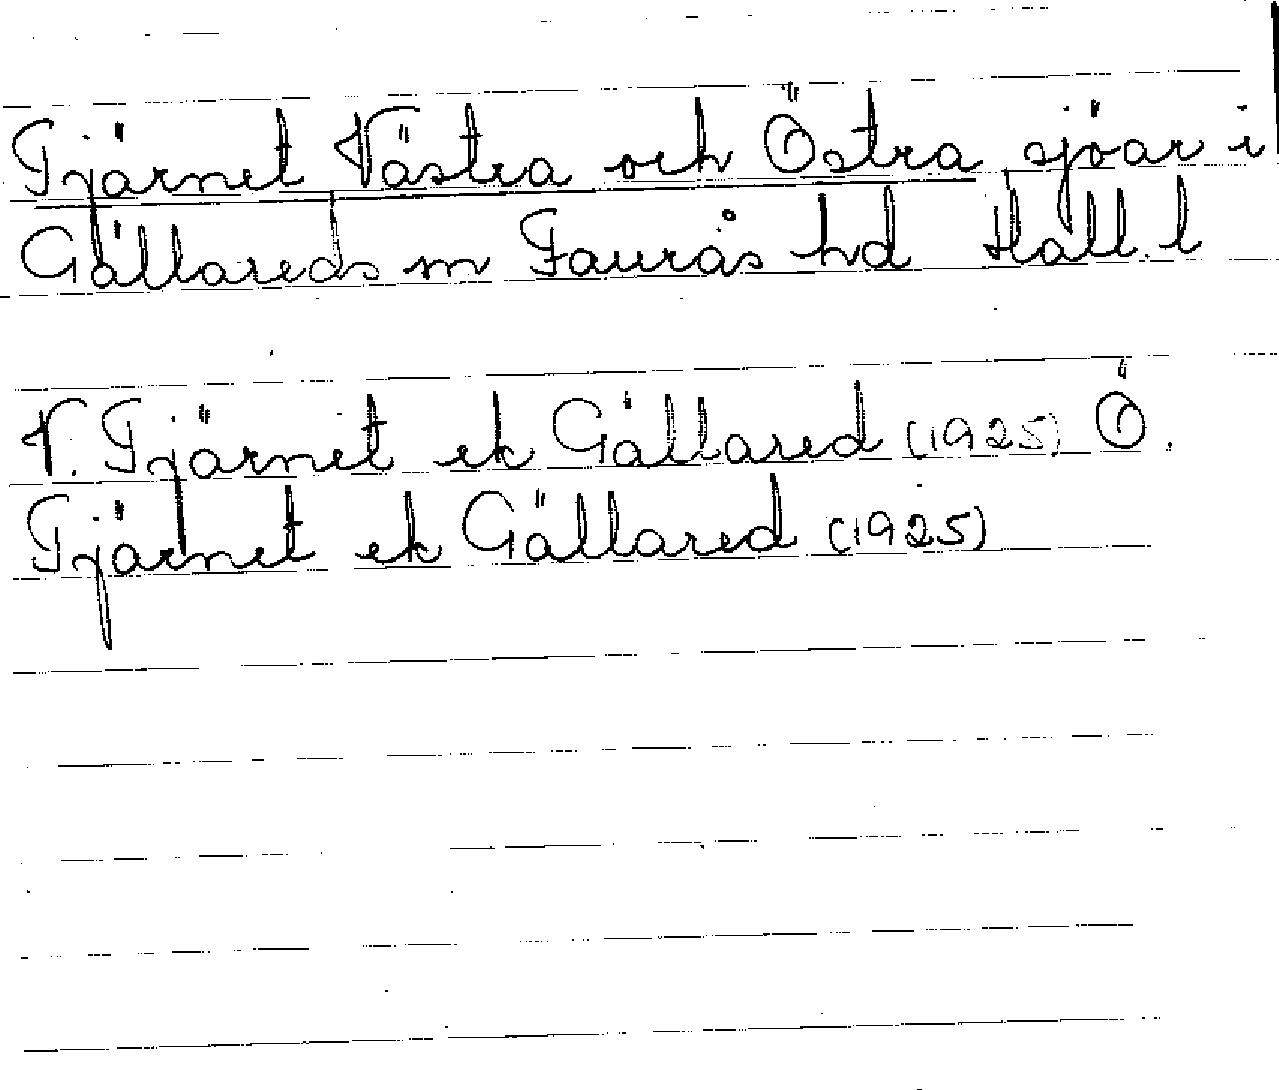 Tjärnet Västra och Östra sjöar i
Gällareds sn Faurås hd Hall. l
V. Tjärnet ek Gällared (1925) Ö.
Tjärnet ek Gällared (1925)